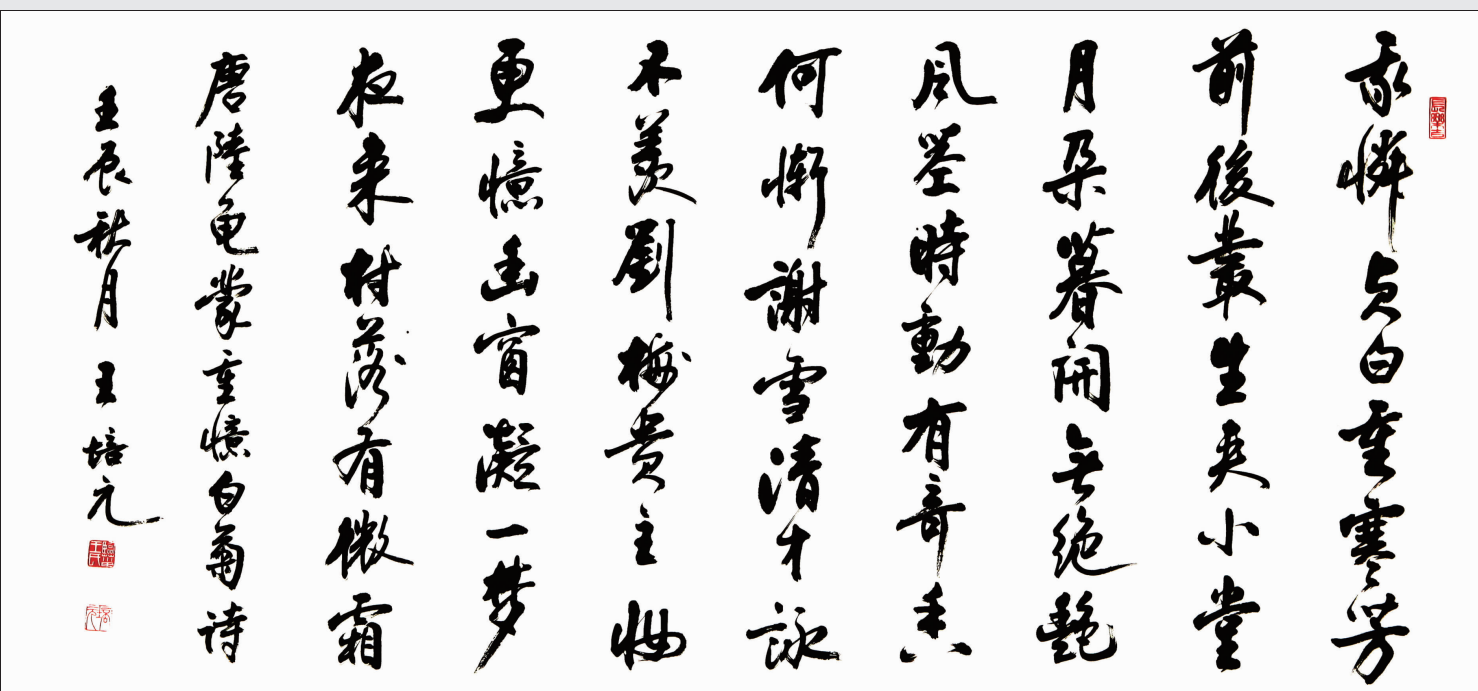 我憐貞白重寒芳
前後叢生夾小堂
月朵暮開無絕艷
風莖時動有奇香
何慚謝雪清才詠
不羨劉梅貴主妝
更憶幽窗凝一梦
夜来村落有微霜
唐陸龟蒙重憶白菊诗
壬辰秋月 王培元